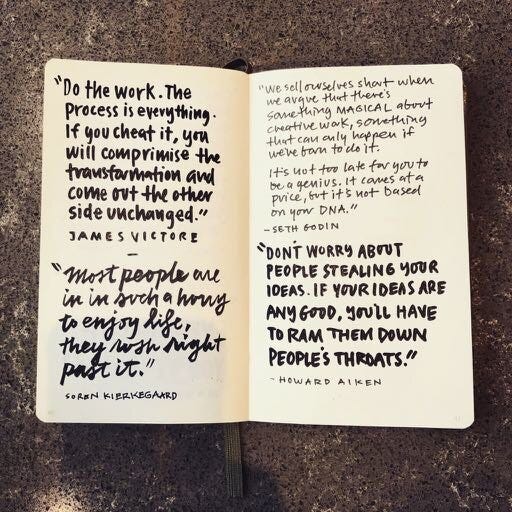 "Do the work. The
Process is everything.
If you cheat it, you
will comprimise the
transformation and
come out the other
side unchanged."
JAMES VICTORE
—
"Most people are
in in such a hurry
to enjoy life,
they rush right
past it."
SOREN KIERKEGAARD
"We sell ourselves short when
we argue that there's
something MAGICAL about
creative work, something
that can only happen if
we're born to do it.
It's not too late for you to
be a genius. It comes at a
price, but it's not based
on your DNA."
- SETH GODIN
"DON'T WORRY ABOUT
PEOPLE STEALING YOUR
IDEAS. IF YOUR IDEAS ARE
ANY GOOD, YOU'LL HAVE
TO RAM THEM DOWN
PEOPLE'S THROATS."
- HOWARD AIKEN